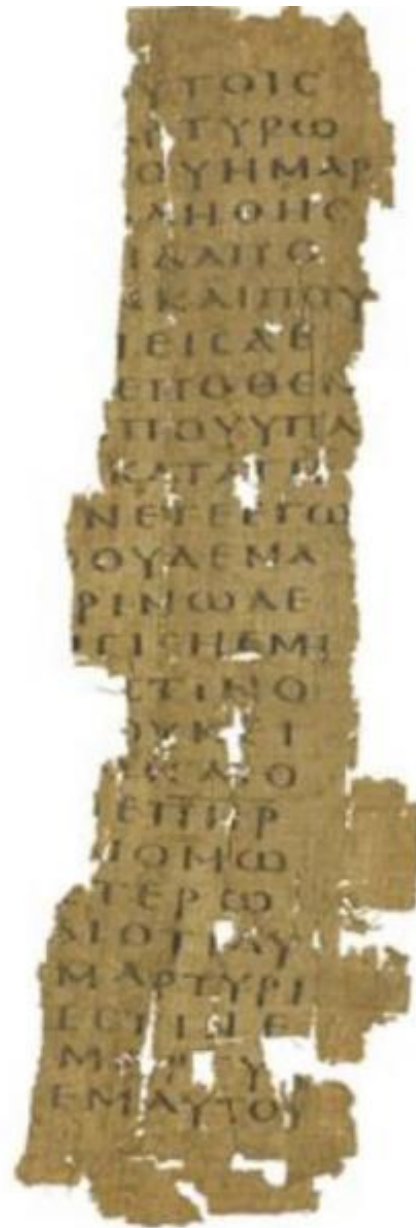 ΥΤΟΙϹ
ΡΤΥΡΩ
ΟΥΗΜΑΡ
ΛΗΘΗϹ
ΙΔΑΠΟ
ΚΑΙΠΟΥ
ΙΕΙϹΔΕ
ΕΠΟΘΕΝ
ΠΟΥΥΠΑ
ΚΑΤΑΤΗ
ΝΕΤΕΕΓΩ
ΟΥΔΕΝΑ
ΡΙΝΩΔΕ
ΙϹΙϹΗΕΜΗ
ϹΤΙΝΟ
ΟΥΚΕΙ
ΚΑΙΟ
ΕΠΗΡ
ΝΟΜΩ
ΤΕΡΩ
ΑΙΟΤΙΔΥ
ΜΑΡΤΥΡΙ
ΕϹΤΙΝΕ
ΜΑΡΤΥ
ΕΜΑΥΤΟΥ